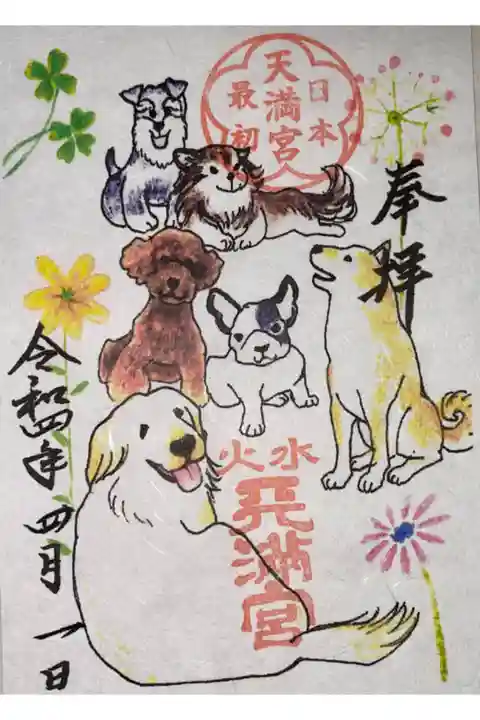 奉拝
日本
天満宮
最初
水火
天満宮
令和四年四月一日